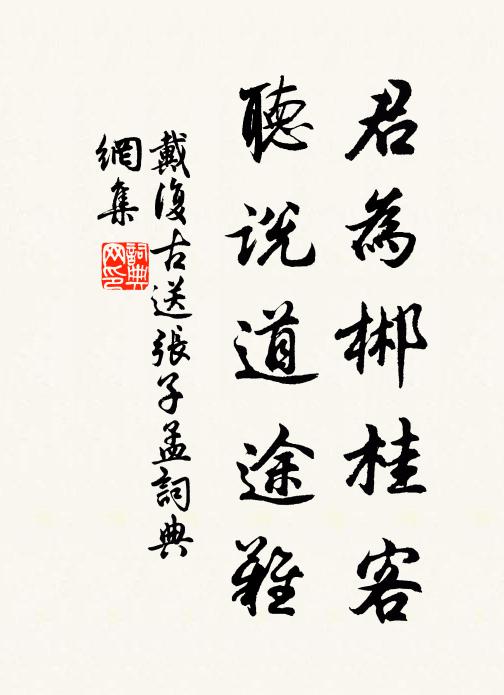 君為郴桂客
聽說道途難
戴復古送張子孟詞典
網集
詞典
网印